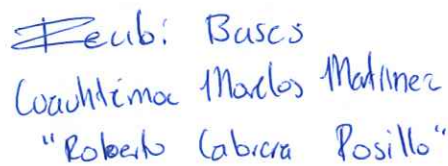 Recibí Bases
Cuauhtémoc Morelos Martínez
"Roberto Cabrera Posillo"